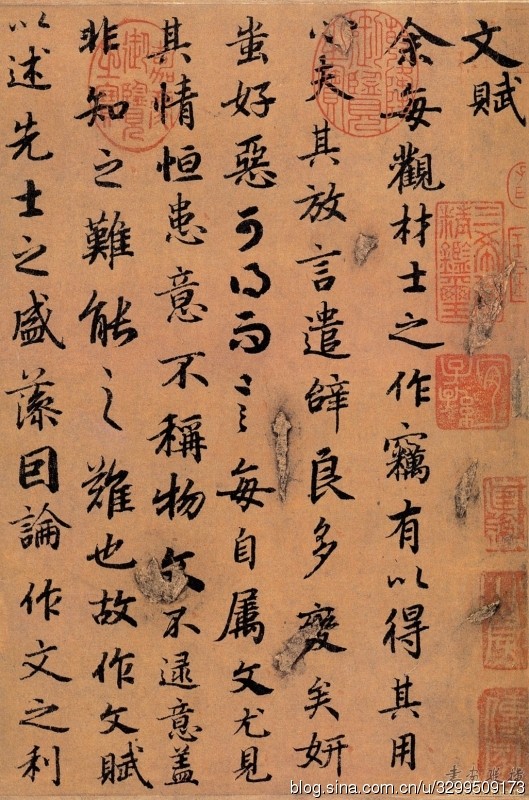 文賦
余每觀材士之作竊有以得其用
心夫其放言遣辭良多變矣妍
蚩好惡可得而言每自屬文尤見
其情恒患意不稱物文不逮意蓋
非知之難能之難也故作文賦
以述先士之盛藻因論作文之利
三希堂
精鑑璽
宜子孫
blog.sina.com.cn/u/3299509173